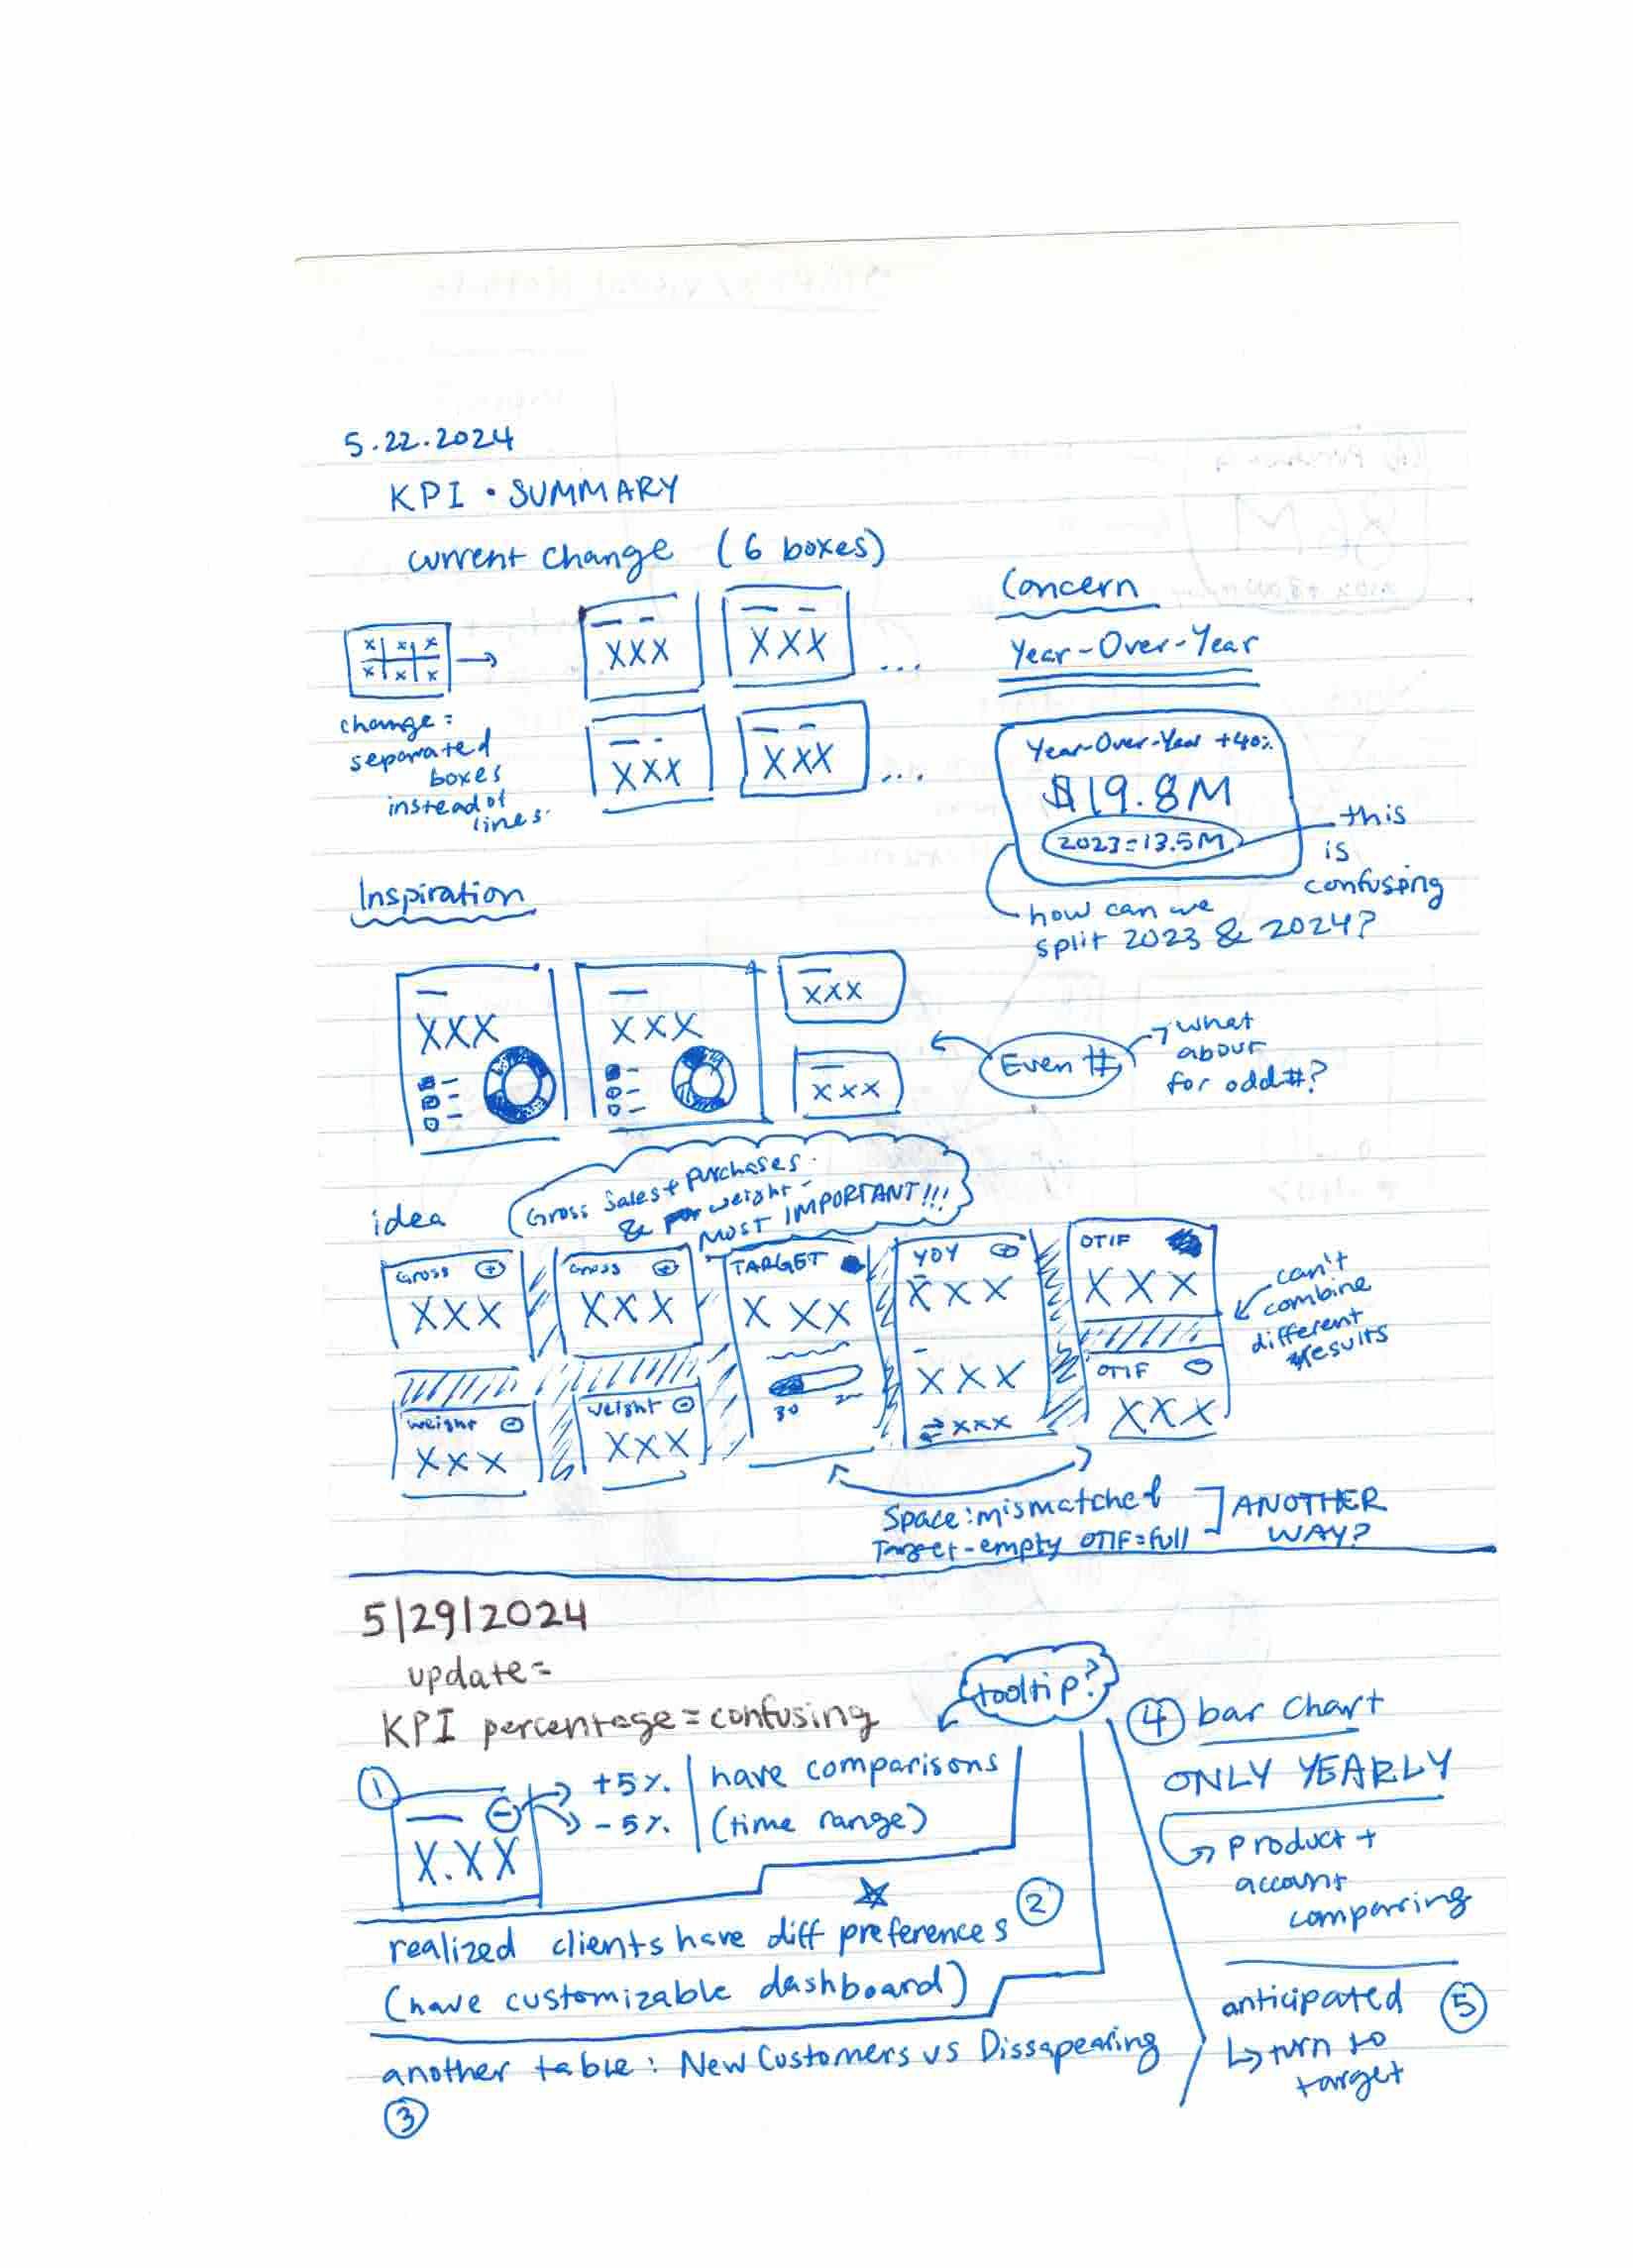 5.22.2024
KPI • SUMMARY
current change (6 boxes)
x x x
x x x
change:
separated
boxes
instead of
lines.
XXX
XXX
...
XXX
XXX
...
Concern
Year-Over-Year
Year-Over-Year +40%
$19.8M
2023=13.5M
this
is
confusing
how can we
split 2023 & 2024?
Inspiration
XXX
XXX
XXX
XXX
Even #
what
about
for odd #?
idea
Gross Sales + Purchases
& weight -
MOST IMPORTANT!!!
Gross +
XXX
Gross +
XXX
TARGET
X XX
30
YOY +
XXX
XXX
XXX
OTIF
XXX
OTIF
XXX
weight -
XXX
weight -
XXX
can't
combine
different
results
Space: mismatched
Target-empty OTIF=full
ANOTHER
WAY?
5|29|2024
update=
KPI percentage = confusing
tooltip?
1
X.XX
+5%.
-5%.
have comparisons
(time range)
realized clients have diff preferences 2
(have customizable dashboard)
another table: New Customers vs Dissapearing
3
4 bar chart
ONLY YEARLY
product +
account
comparing
anticipated 5
turn to
target